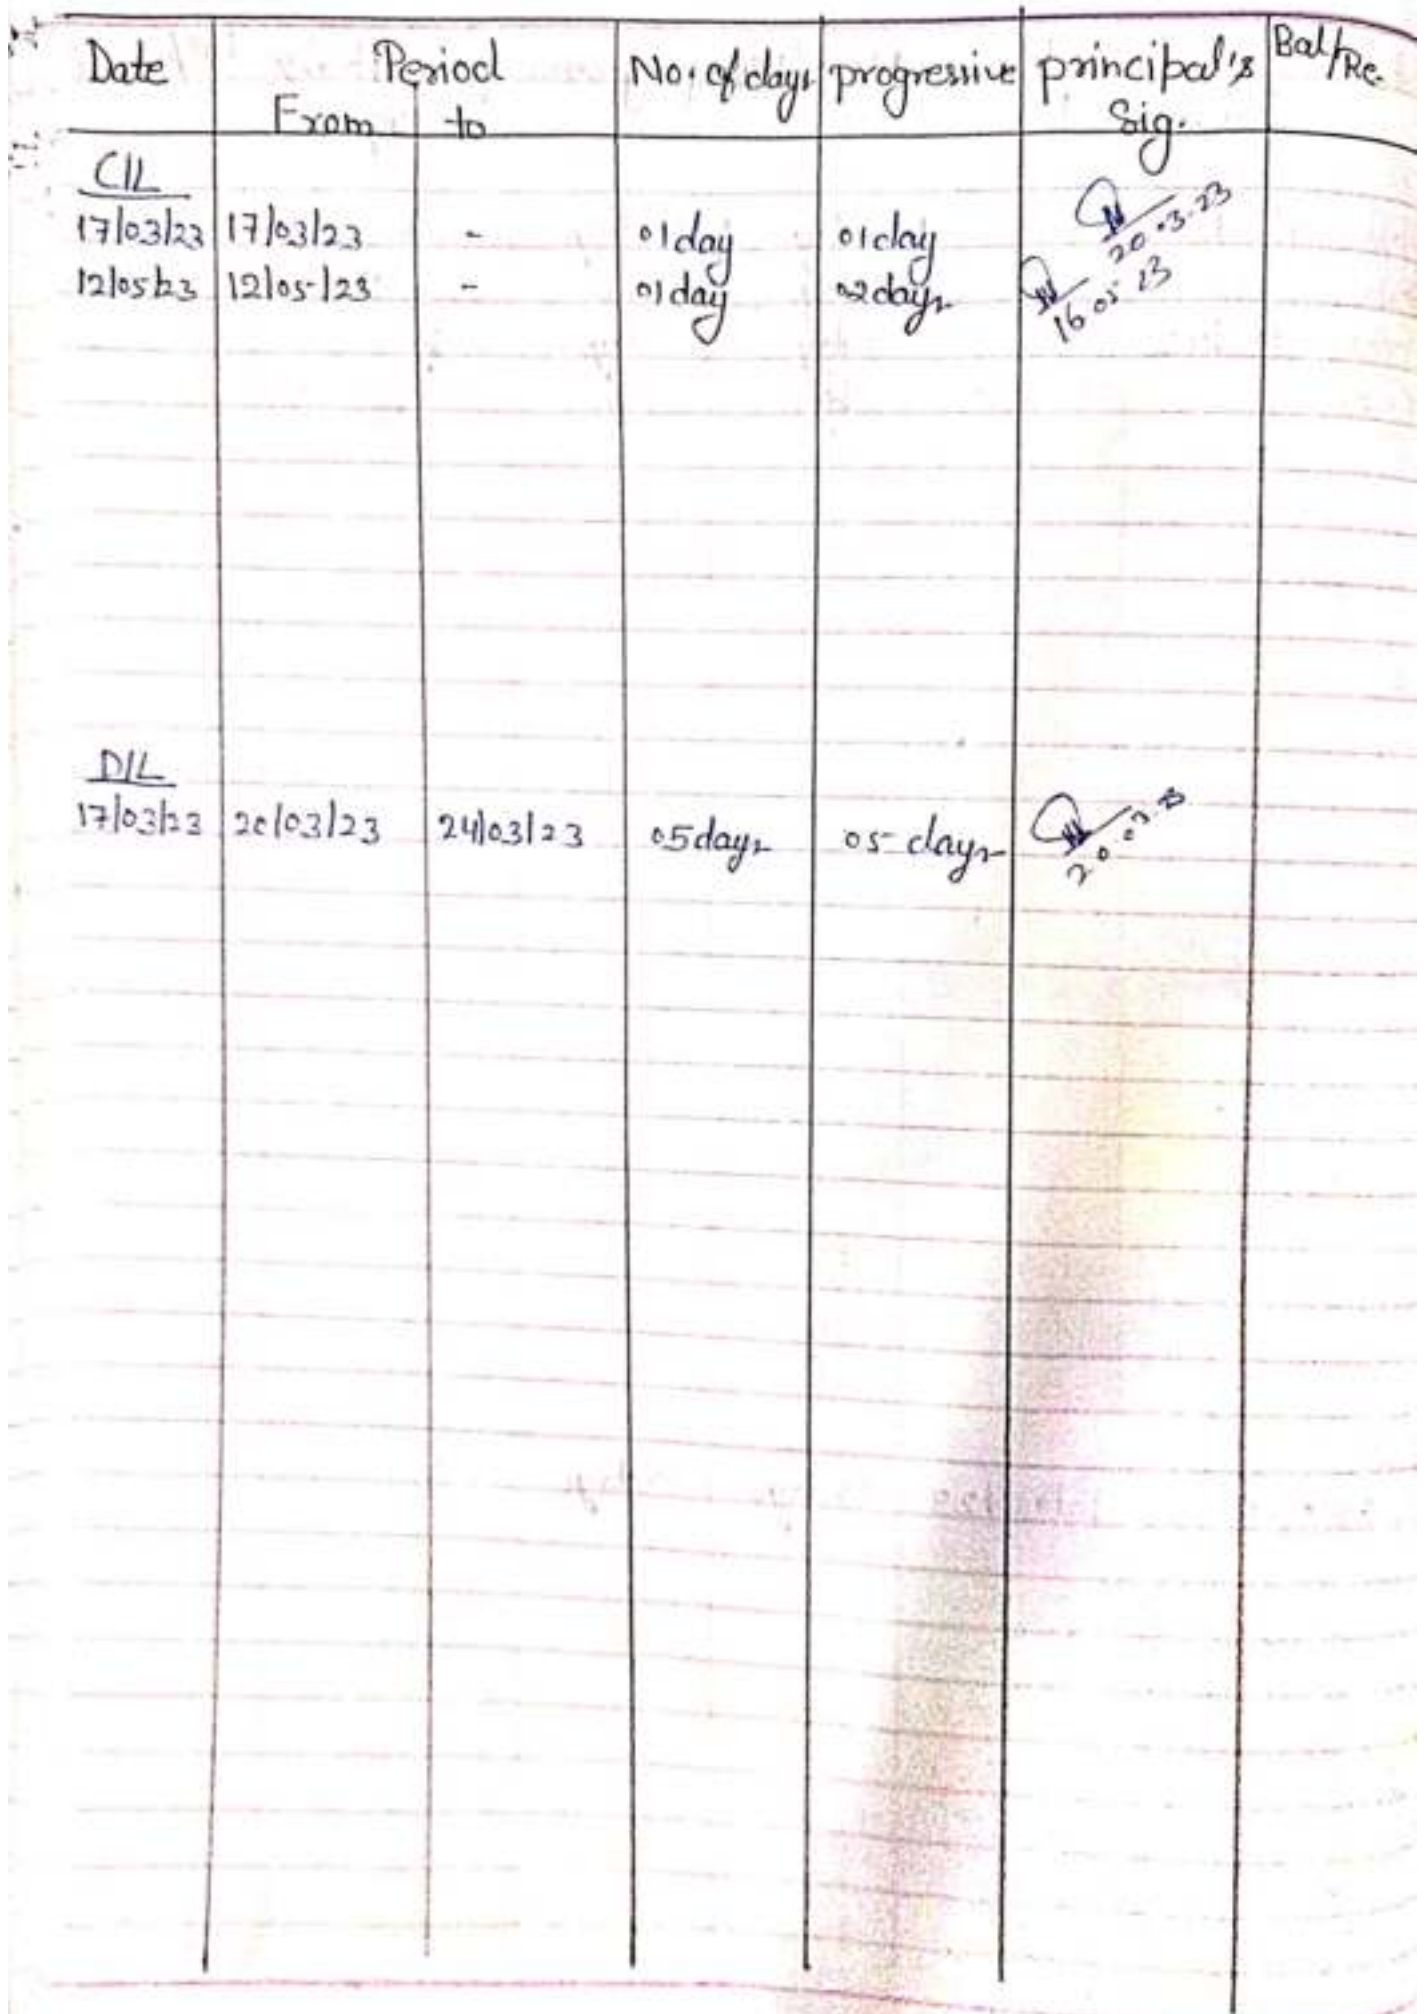 Date Period No. of days progressive principal's Bal/Re.
From to Sig.
C/L
17/03/23 17/03/23 - 01 day 01 day 20.03.23
12/05/23 12/05/23 - 01 day 02 days 16.05.23
D/L
17/03/23 20/03/23 24/03/23 05 days 05 days 20.03.23